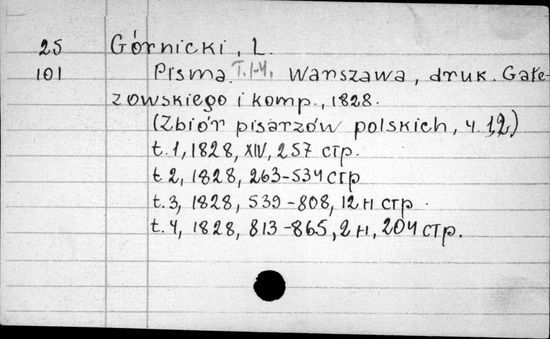 25 Górnicki, L.
101 Pisma. T.1-4. Warszawa, druk. Gałę-
zowskiego i komp., 1828.
(Zbiór pisarzów polskich, ч. 1,2)
t. 1, 1828, XIV, 257 стр.
t. 2, 1828, 263-534 стр
t. 3, 1828, 539-808, 12 н стр.
t. 4, 1828, 813-865, 2 н, 204 стр.